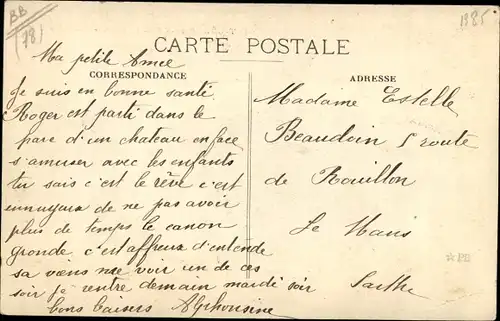 BB
(78)
1385
CARTE POSTALE
CORRESPONDANCE
ADRESSE
Ma petite Amie
Je suis en bonne santé
Roger est parti dans le
parc d'un chateau en face
s'amuser avec les enfants
tu sais c'est le rêve c'est
ennuyeux de ne pas avoir
plus de temps le canon
gronde c'est affreux d'entende
sa voir un de ces
soir je rentre demain mardi soir
bons baisers Alphonsine
Madame Estelle
Beaudoin 5 route
de Rouillon
Le Mans
Sarthe